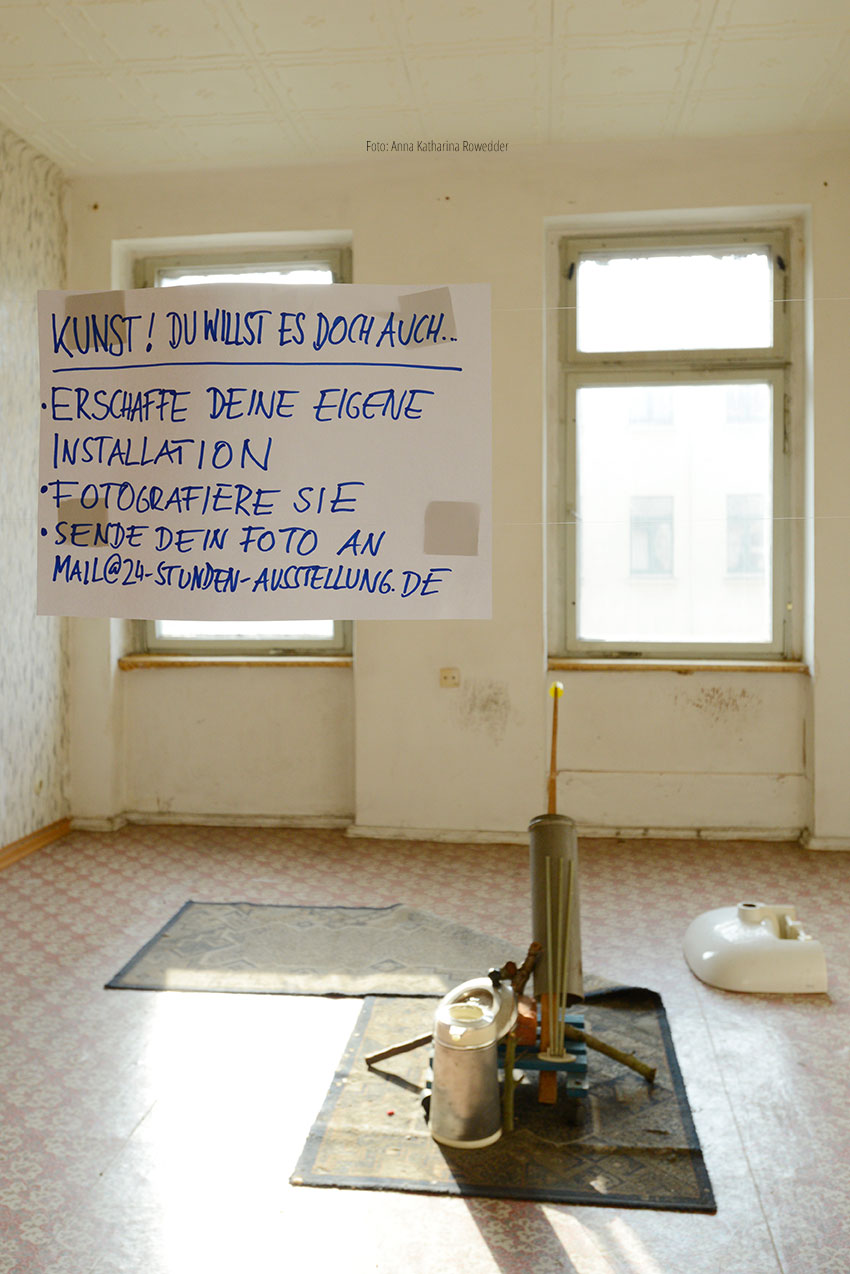 Foto: Anna Katharina Rowedder
KUNST! DU WILLST ES DOCH AUCH..
• ERSCHAFFE DEINE EIGENE
INSTALLATION
• FOTOGRAFIERE SIE
• SENDE DEIN FOTO AN
MAIL@24-STUNDEN-AUSSTELLUNG.DE